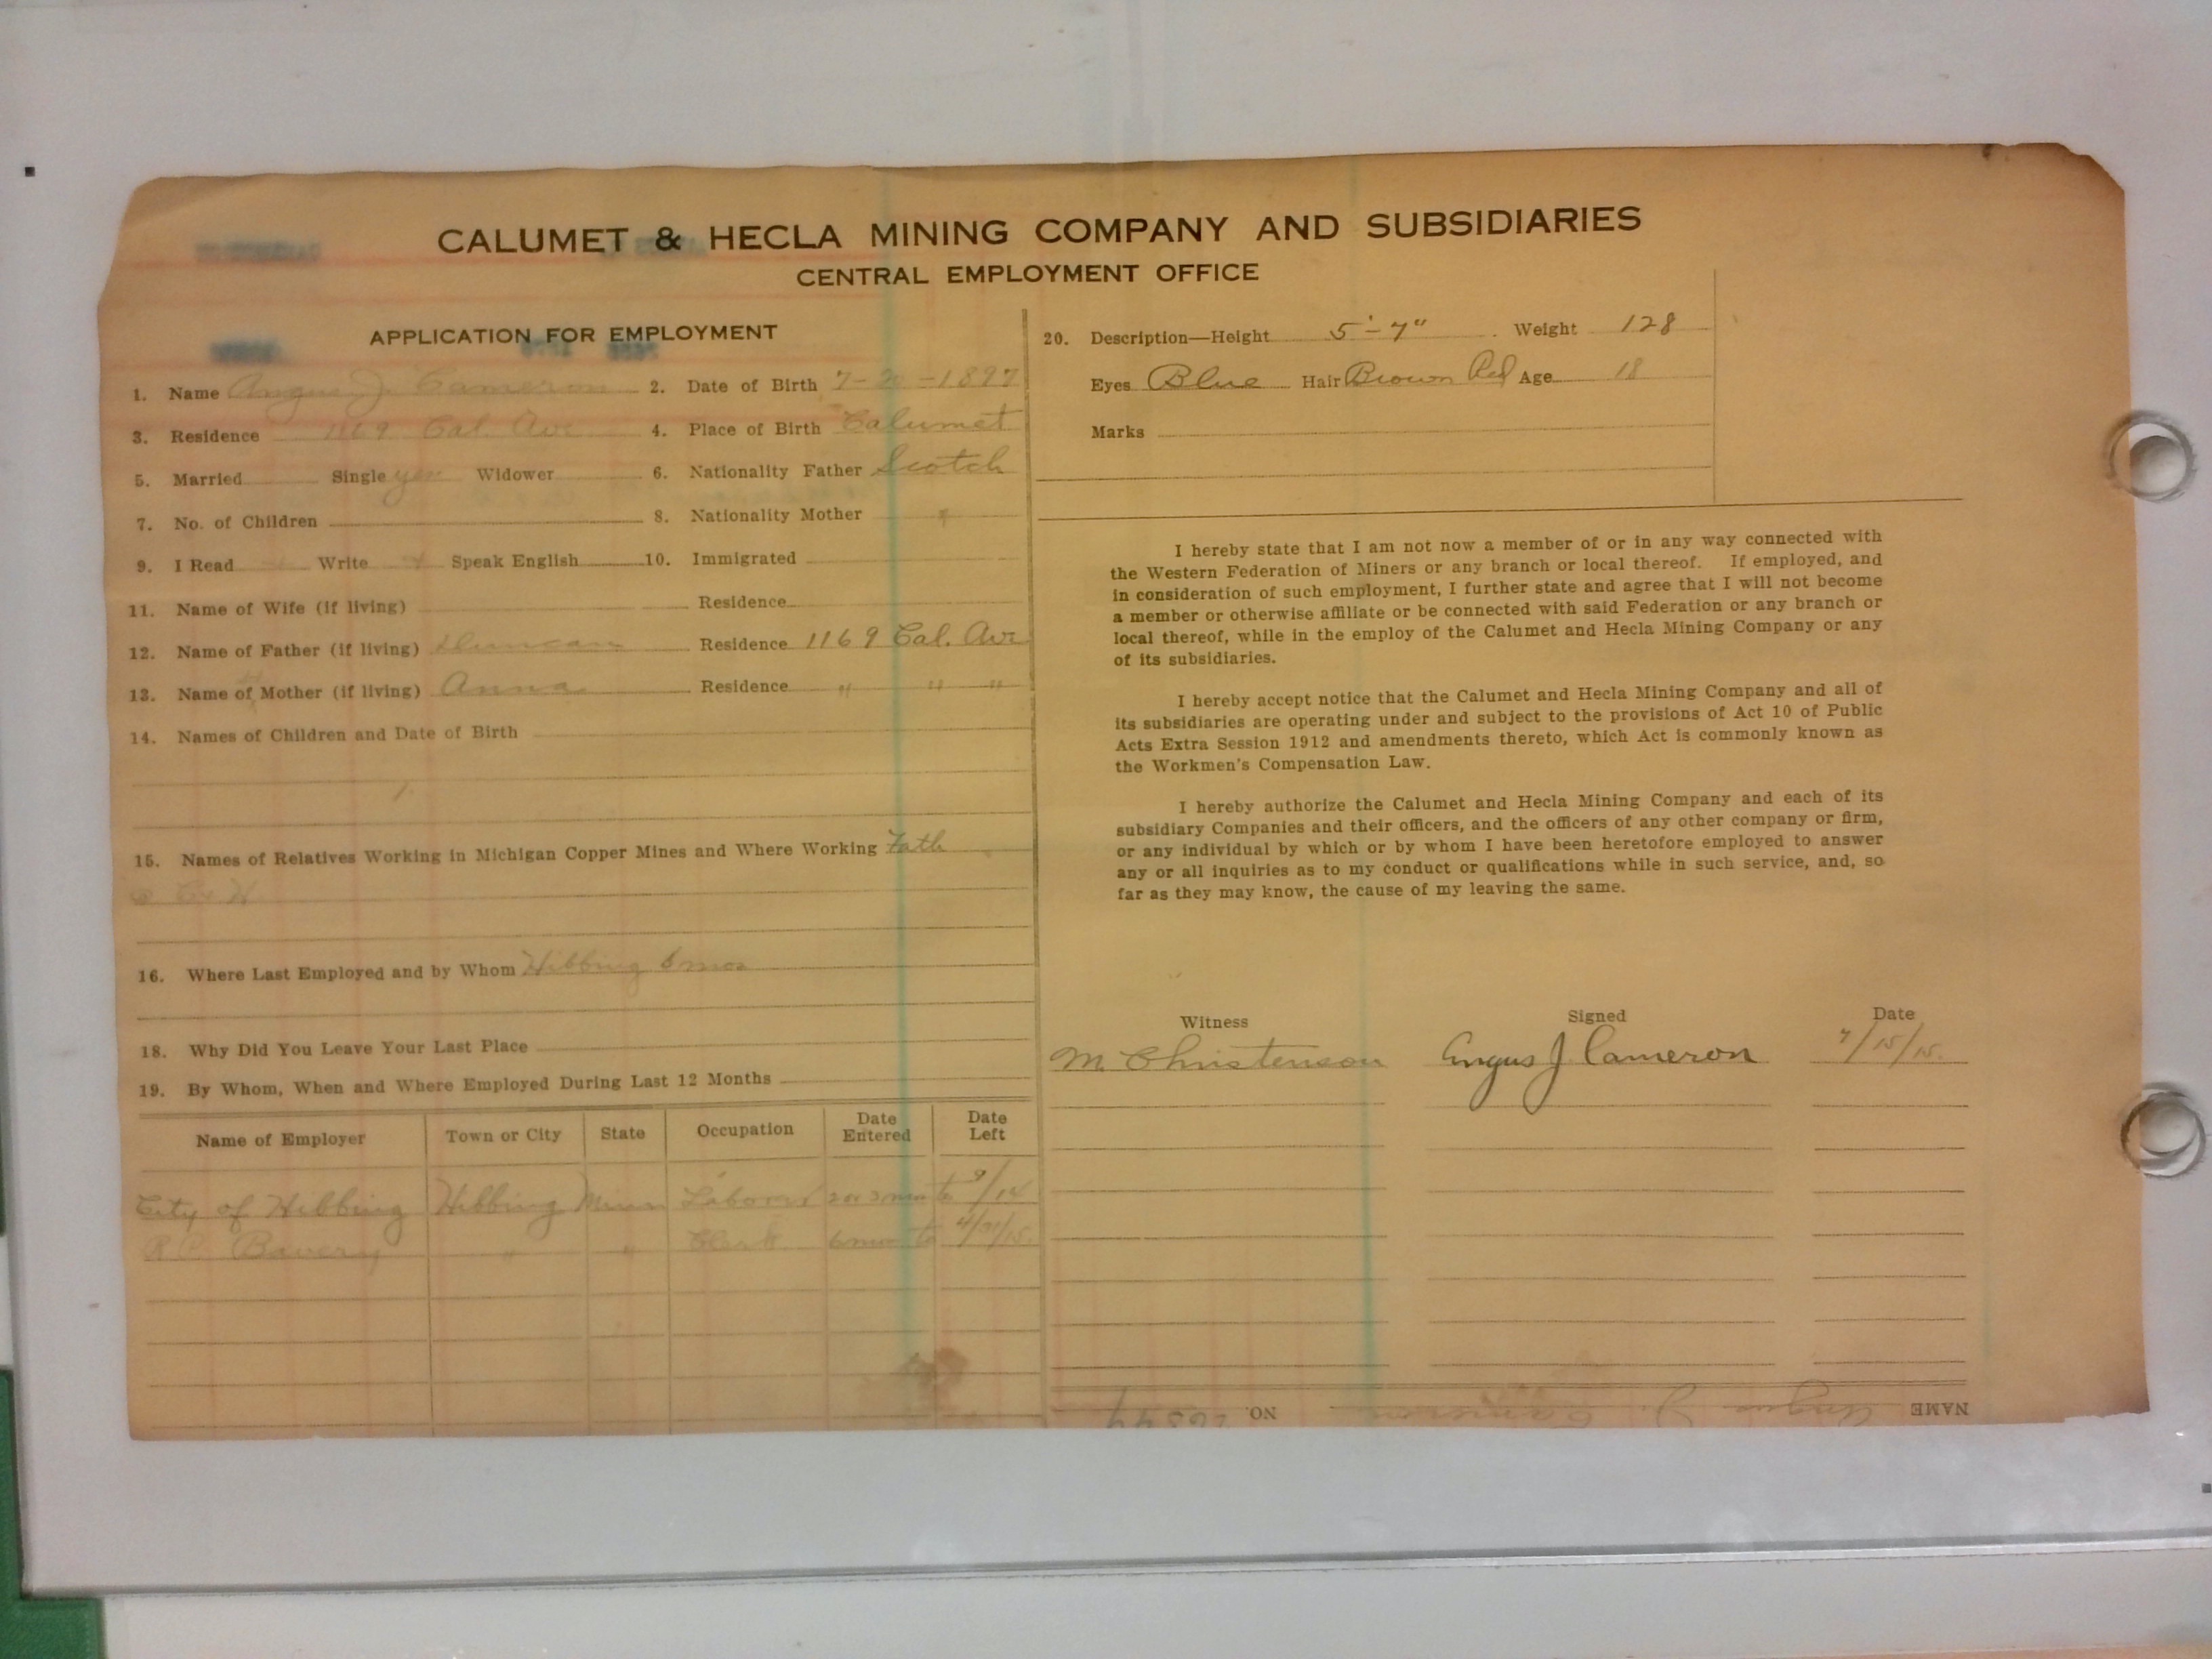 CALUMET & HECLA MINING COMPANY AND SUBSIDIARIES
CENTRAL EMPLOYMENT OFFICE
APPLICATION FOR EMPLOYMENT
1. Name Angus J. Cameron 2. Date of Birth 7-20-1897
3. Residence 1169 Cal. Ave 4. Place of Birth Calumet
5. Married Single yes Widower 6. Nationality Father Scotch
7. No. of Children 8. Nationality Mother "
9. I Read Write Speak English 10. Immigrated
11. Name of Wife (if living) Residence
12. Name of Father (if living) Duncan Residence 1169 Cal. Ave
13. Name of Mother (if living) Anna Residence " " "
14. Names of Children and Date of Birth
15. Names of Relatives Working in Michigan Copper Mines and Where Working Fath
16. Where Last Employed and by Whom Hibbing 8 mos
18. Why Did You Leave Your Last Place
19. By Whom, When and Where Employed During Last 12 Months
Name of Employer Town or City State Occupation Date Entered Date Left
City of Hibbing Hibbing Minn Laborer 2 or 3 mos to 9/14
" " Clerk 6 mos to
20. Description—Height 5'-7" Weight 128
Eyes Blue Hair Brown Red Age 18
Marks
I hereby state that I am not now a member of or in any way connected with
the Western Federation of Miners or any branch or local thereof. If employed, and
in consideration of such employment, I further state and agree that I will not become
a member or otherwise affiliate or be connected with said Federation or any branch or
local thereof, while in the employ of the Calumet and Hecla Mining Company or any
of its subsidiaries.
I hereby accept notice that the Calumet and Hecla Mining Company and all of
its subsidiaries are operating under and subject to the provisions of Act 10 of Public
Acts Extra Session 1912 and amendments thereto, which Act is commonly known as
the Workmen's Compensation Law.
I hereby authorize the Calumet and Hecla Mining Company and each of its
subsidiary Companies and their officers, and the officers of any other company or firm,
or any individual by which or by whom I have been heretofore employed to answer
any or all inquiries as to my conduct or qualifications while in such service, and, so
far as they may know, the cause of my leaving the same.
Witness Signed Date
M. Christenson Angus J Cameron 7/15/15.
NAME Angus J. Cameron NO.